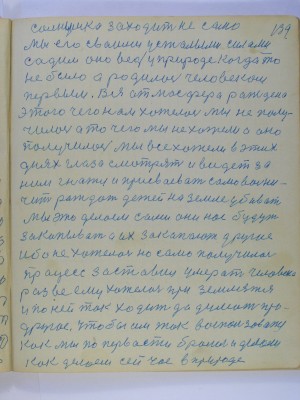 солнушка заходить не само 139
мы его своими усталыми силами
садим оно ведь у природе когда то
не было а родилося человеком
первым. Вся атмосфера рождена
этого чего нам хотелося мы не полу-
чилося а то чего мы не хотели а оно
получилося мы все хотели в этих
днях глаза смотрят и видет за
ним гнатя и присваеват само
чит рождат детей на земле убиват
мы это делаем сами они нас будут
закапыват а их закапают другие
ибо не хотелося но само получилося
процес заставил умерат человека
разве ему хотелося при земле жит
и по ней так ходит да думат про-
другое, чтобы им так воспользоват
как мы по первасти брали и делали
как делаем сей час в природе